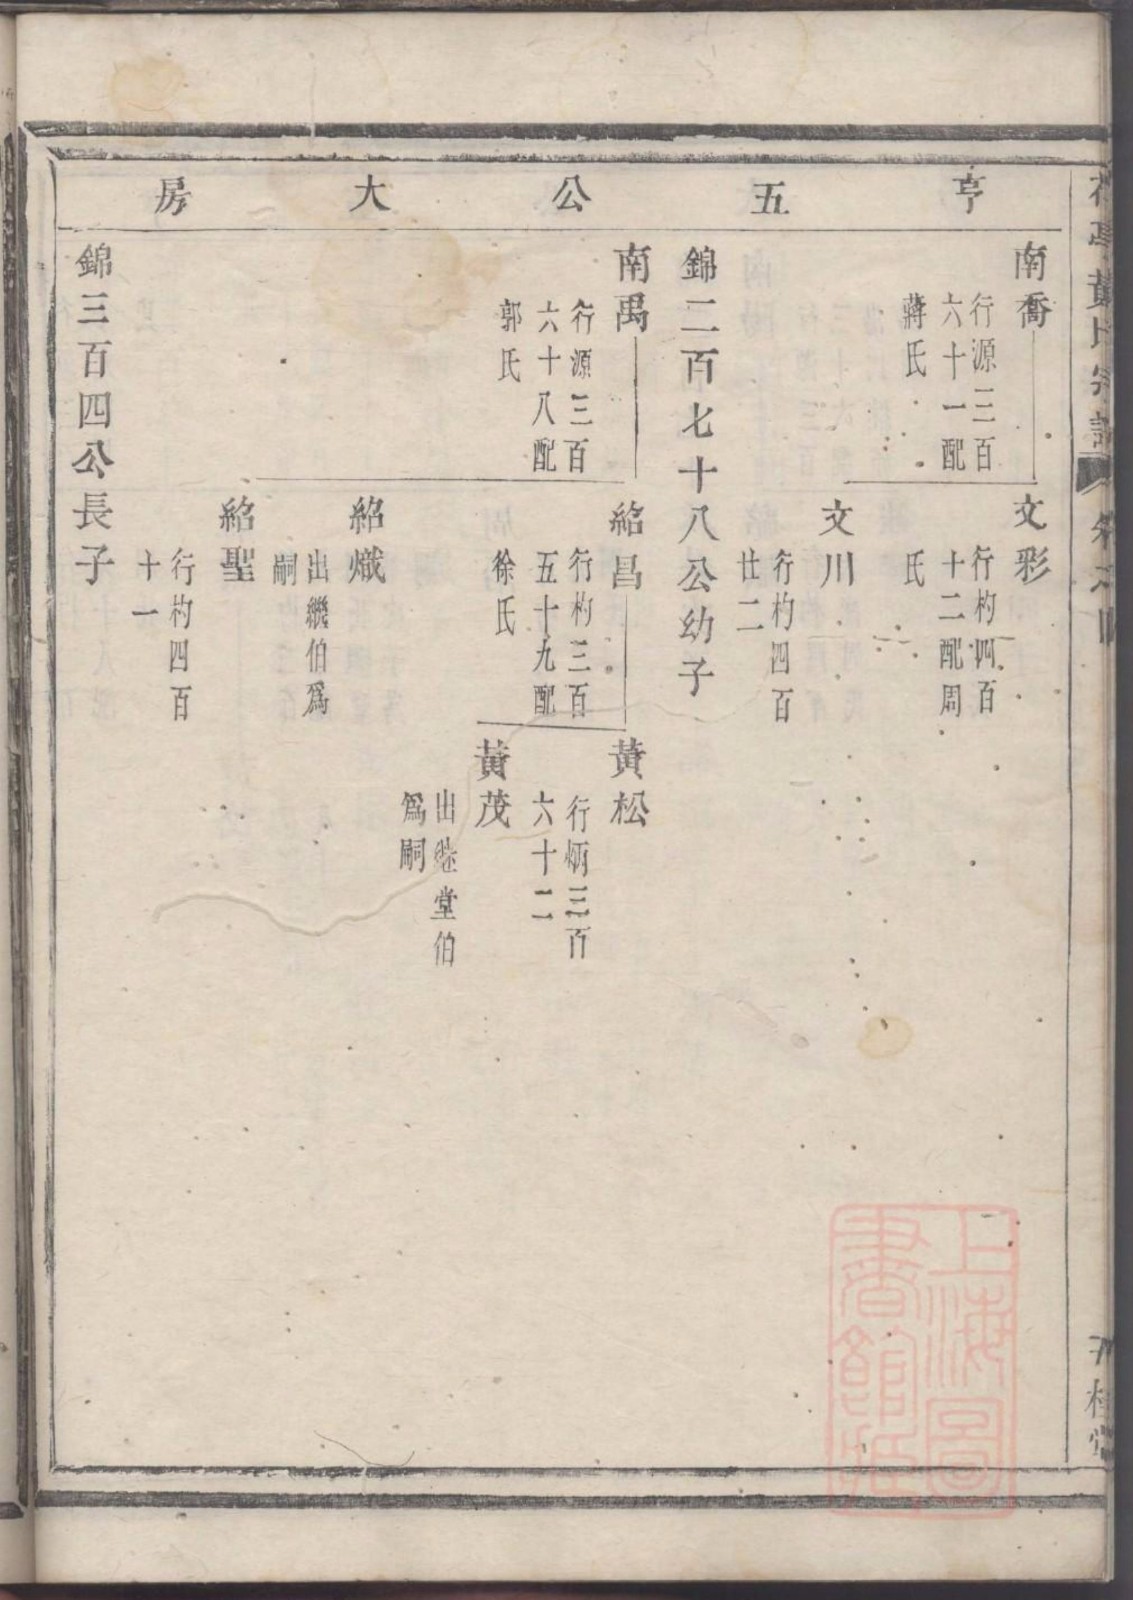 亨五公大房
南喬
行源三百
六十一配
蔣氏
文彩
行杓四百
十二配周
氏
文川
行杓四百
廿二
錦二百七十八公幼子
南禹
行源三百
六十八配
郭氏
紹昌
行杓三百
五十九配
徐氏
黃松
行炳三百
六十二
黃茂
出繼堂伯
為嗣
紹熾
出繼伯爲
嗣
紹聖
行杓四百
十一
錦三百四公長子
黃氏宗譜
桂堂
上海圖
書館藏